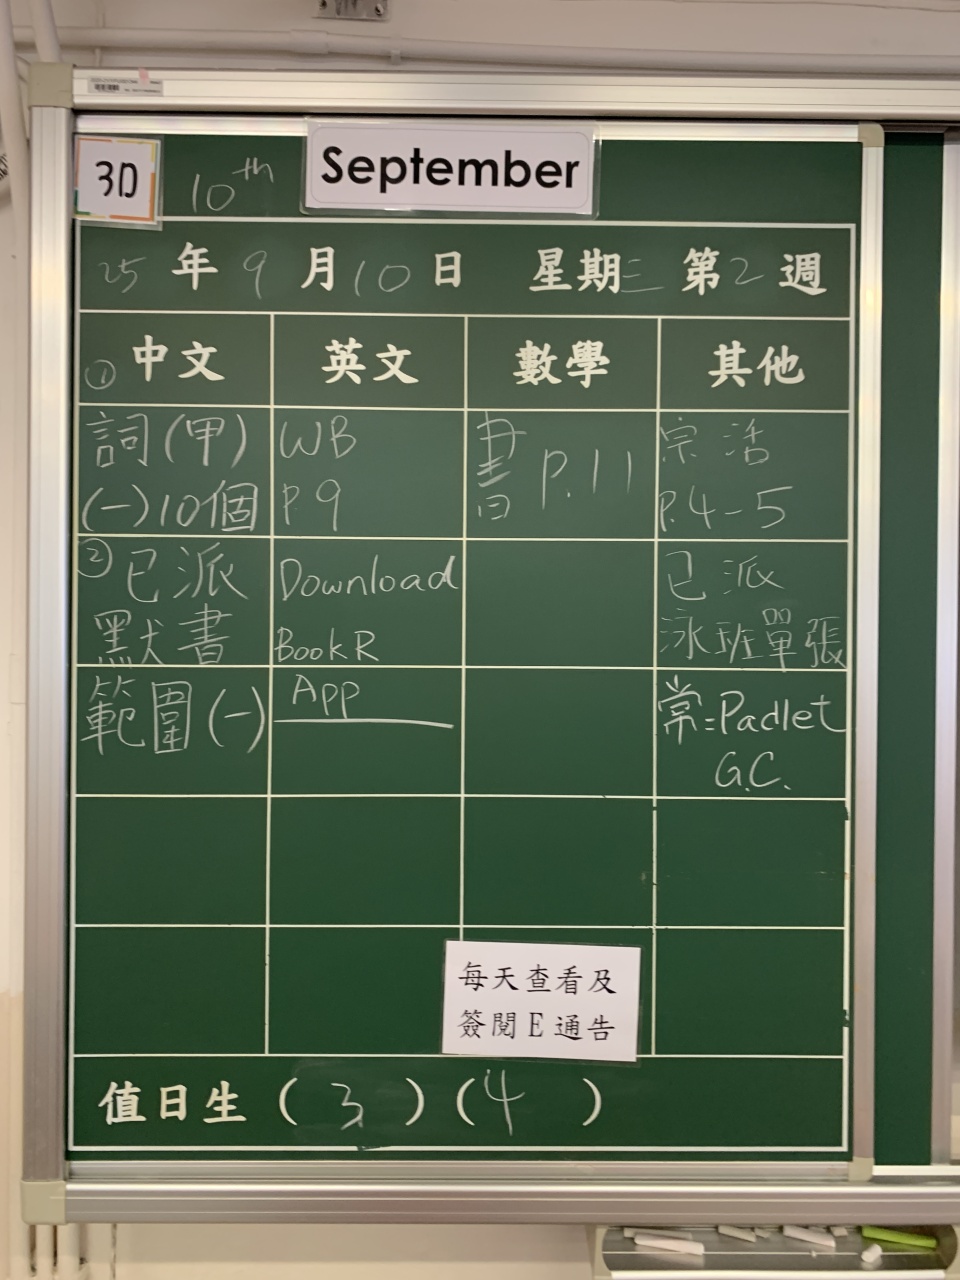 3D
10th
September
25年9月10日 星期三 第2週
① 中文
英文
數學
其他
詞(甲)
(一)10個
WB
P.9
書 P.11
宗 活
P.4-5
② 已派
默書
範圍(一)
Download
BookR
App
已派
泳班單張
常:Padlet
G.C.
每天查看及
簽閱E通告
值日生(3)(4)